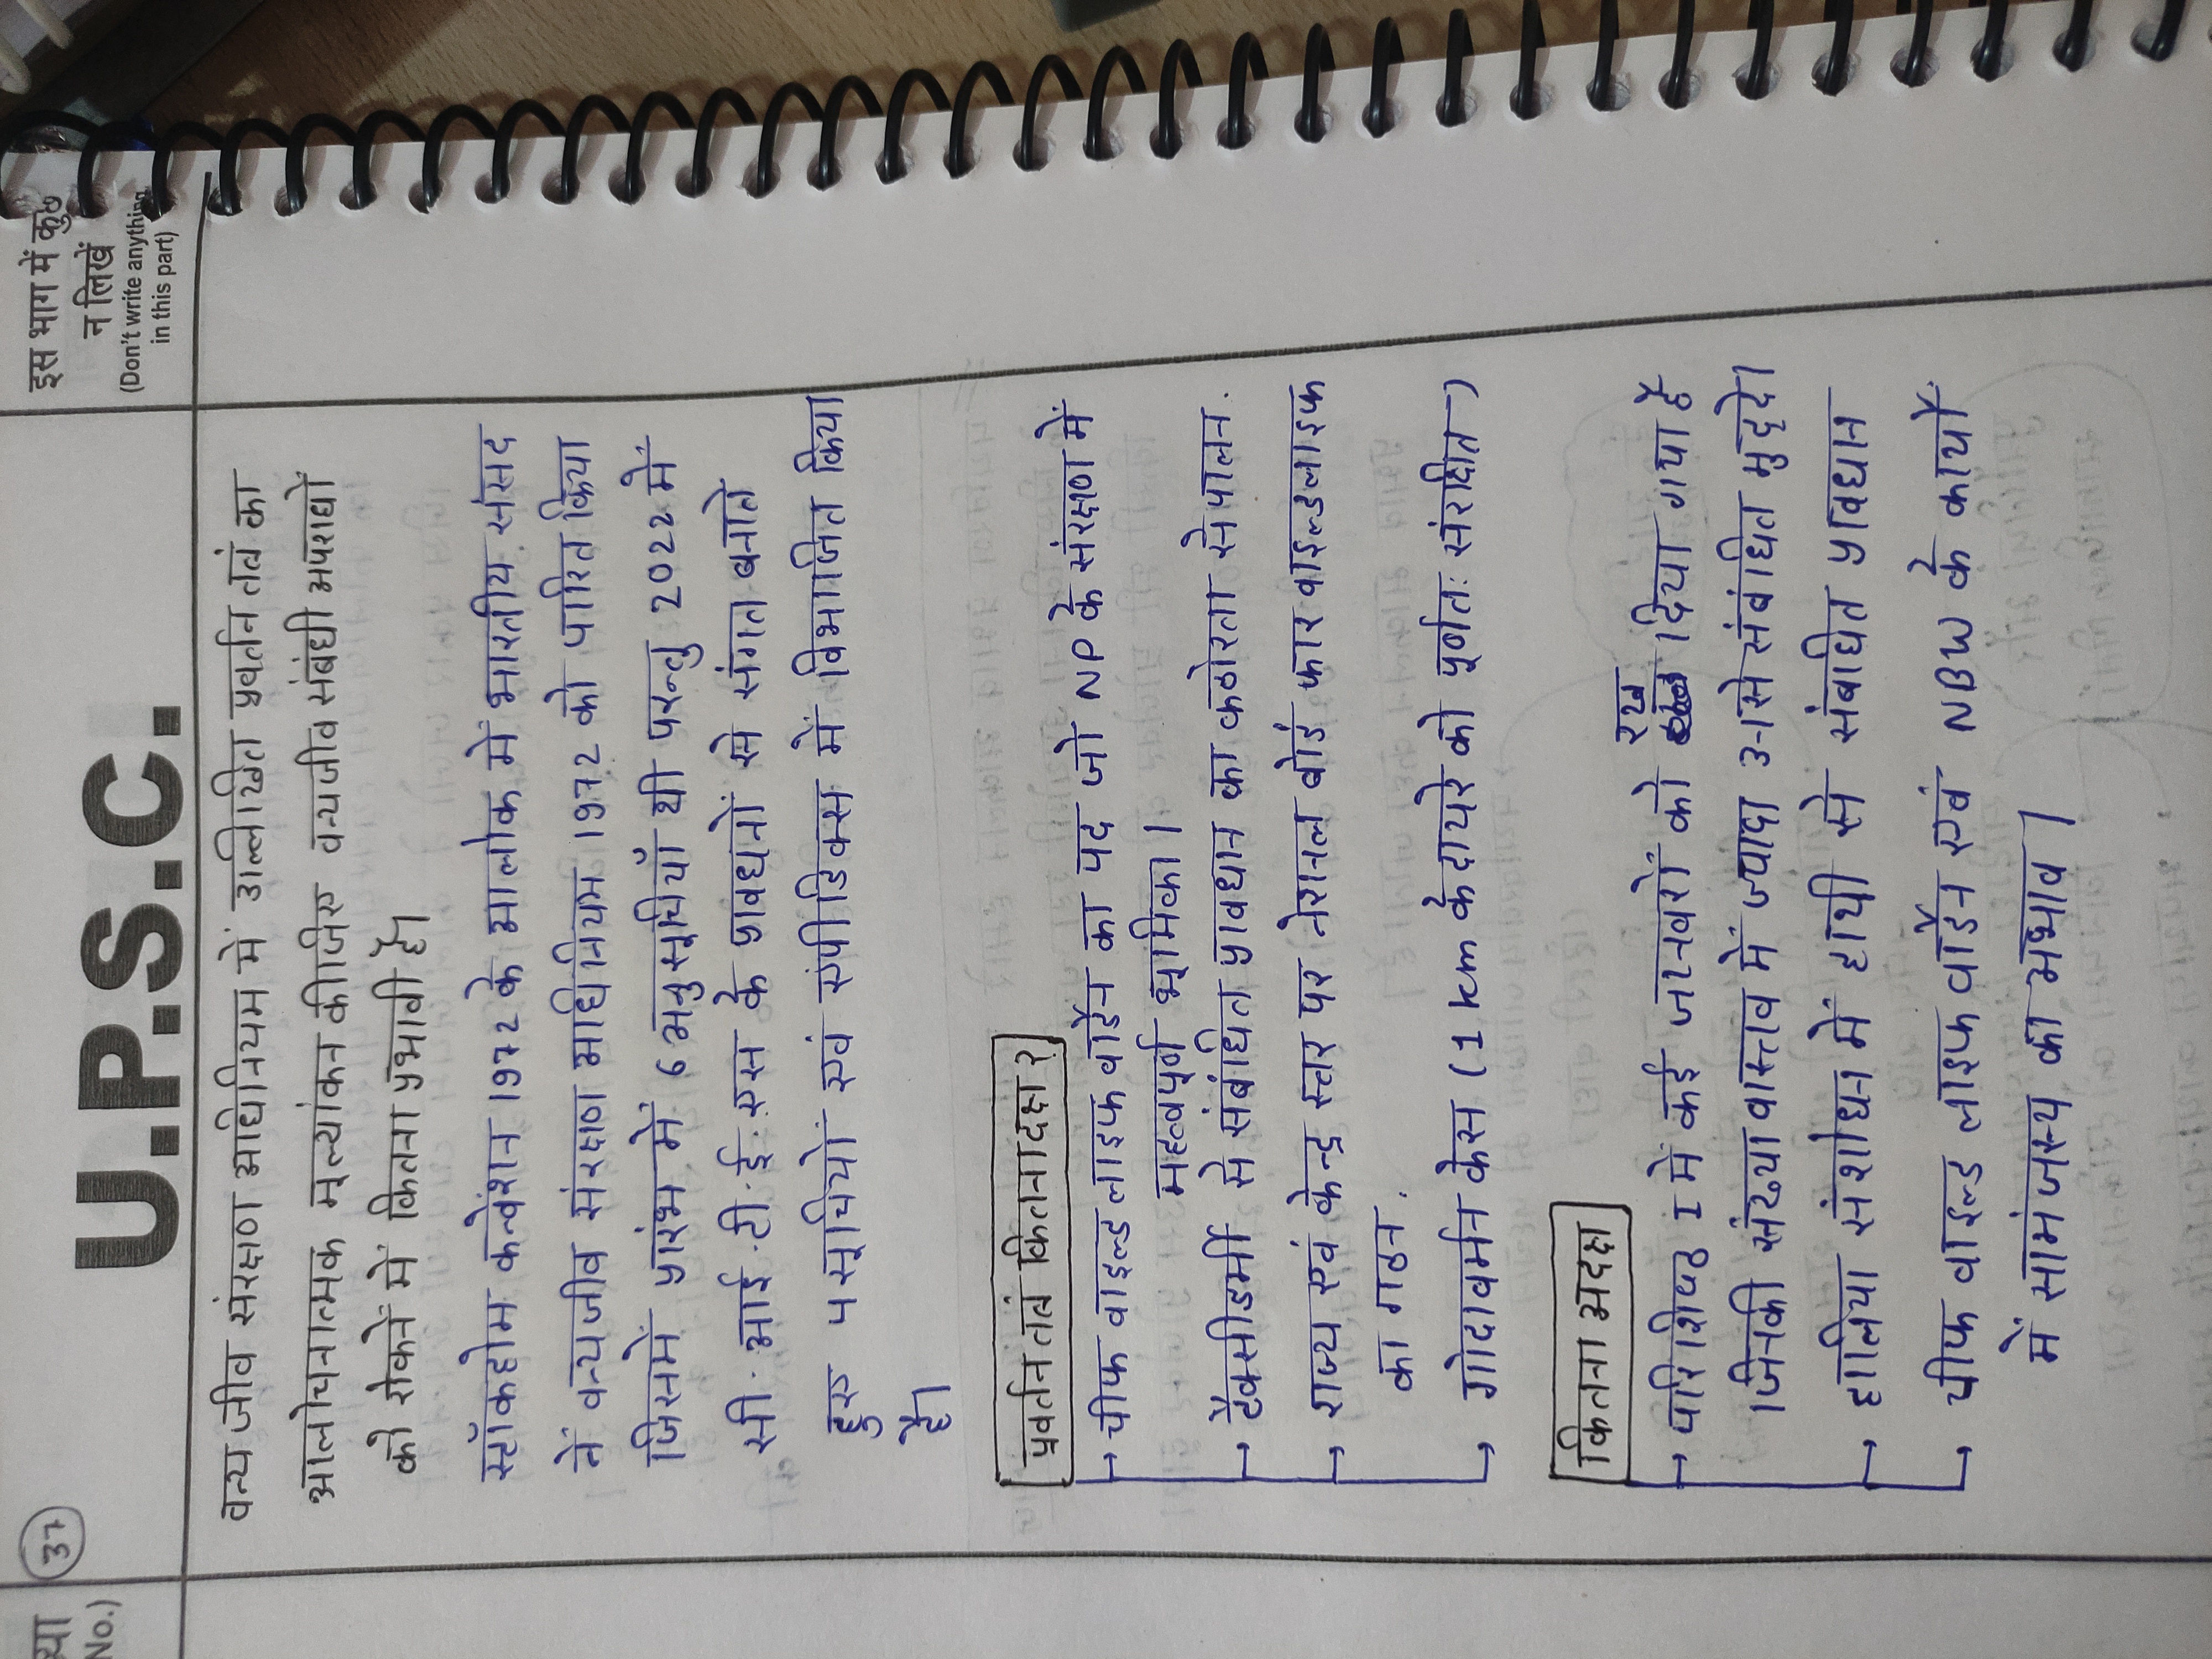 ख्या
No.)
37
U.P.S.C.
इस भाग में कुछ
न लिखें
(Don't write anything
in this part)
वन्य जीव संरक्षण अधिनियम में उल्लिखित प्रवर्तन तत्रं का
आलोचनात्मक मूल्यांकन कीजिए वन्यजीव संबंधी अपराधों
को रोकनें में कितना प्रभावी हैं।
स्टॉकहोम कन्वेंशन 1972 के आलोक में भारतीय संसद
नें वन्यजीव संरक्षण अधिनियम 1972 को पारित किया
जिसमें प्रारंभ में 6 अनुसूचियाँ थी परन्तु 2022 में
सी. आई. टी. ई. एस के प्रावधानों से संगत बनाते
हुए 4 सूचियों एवं एपीडिक्स में विभाजित किया
है।
प्रवर्तन तत्रं कितनादक्ष?
→ चीफ वाइल्ड लाइफ वार्डेन का पद जो NP के संरक्षण में
महत्वपूर्ण भूमिका।
→ टैक्सीडर्मी से संबंधित प्रावधान का कठोरता से पालन.
→ राज्य एवं केन्द्र स्तर पर नेशनल बोर्ड फार वाइल्डलाइफ
का गठन.
→ गोदावर्मन केस (1 km के दायरे को पूर्णतः संरक्षित)
कितना अदक्ष
→ परिशिष्ठ I में कई जानवरों को रख दिया गया है
जिनकी संख्या वास्तव में ज्यादा उनसे संबंधित मुद्दे।
→ हालिया संशोधन में हाथी से संबंधित प्रविधान
→ चीफ वाइल्ड लाइफ वार्डेन एवं NBW के कार्यों
में सामंजस्य का अभाव।